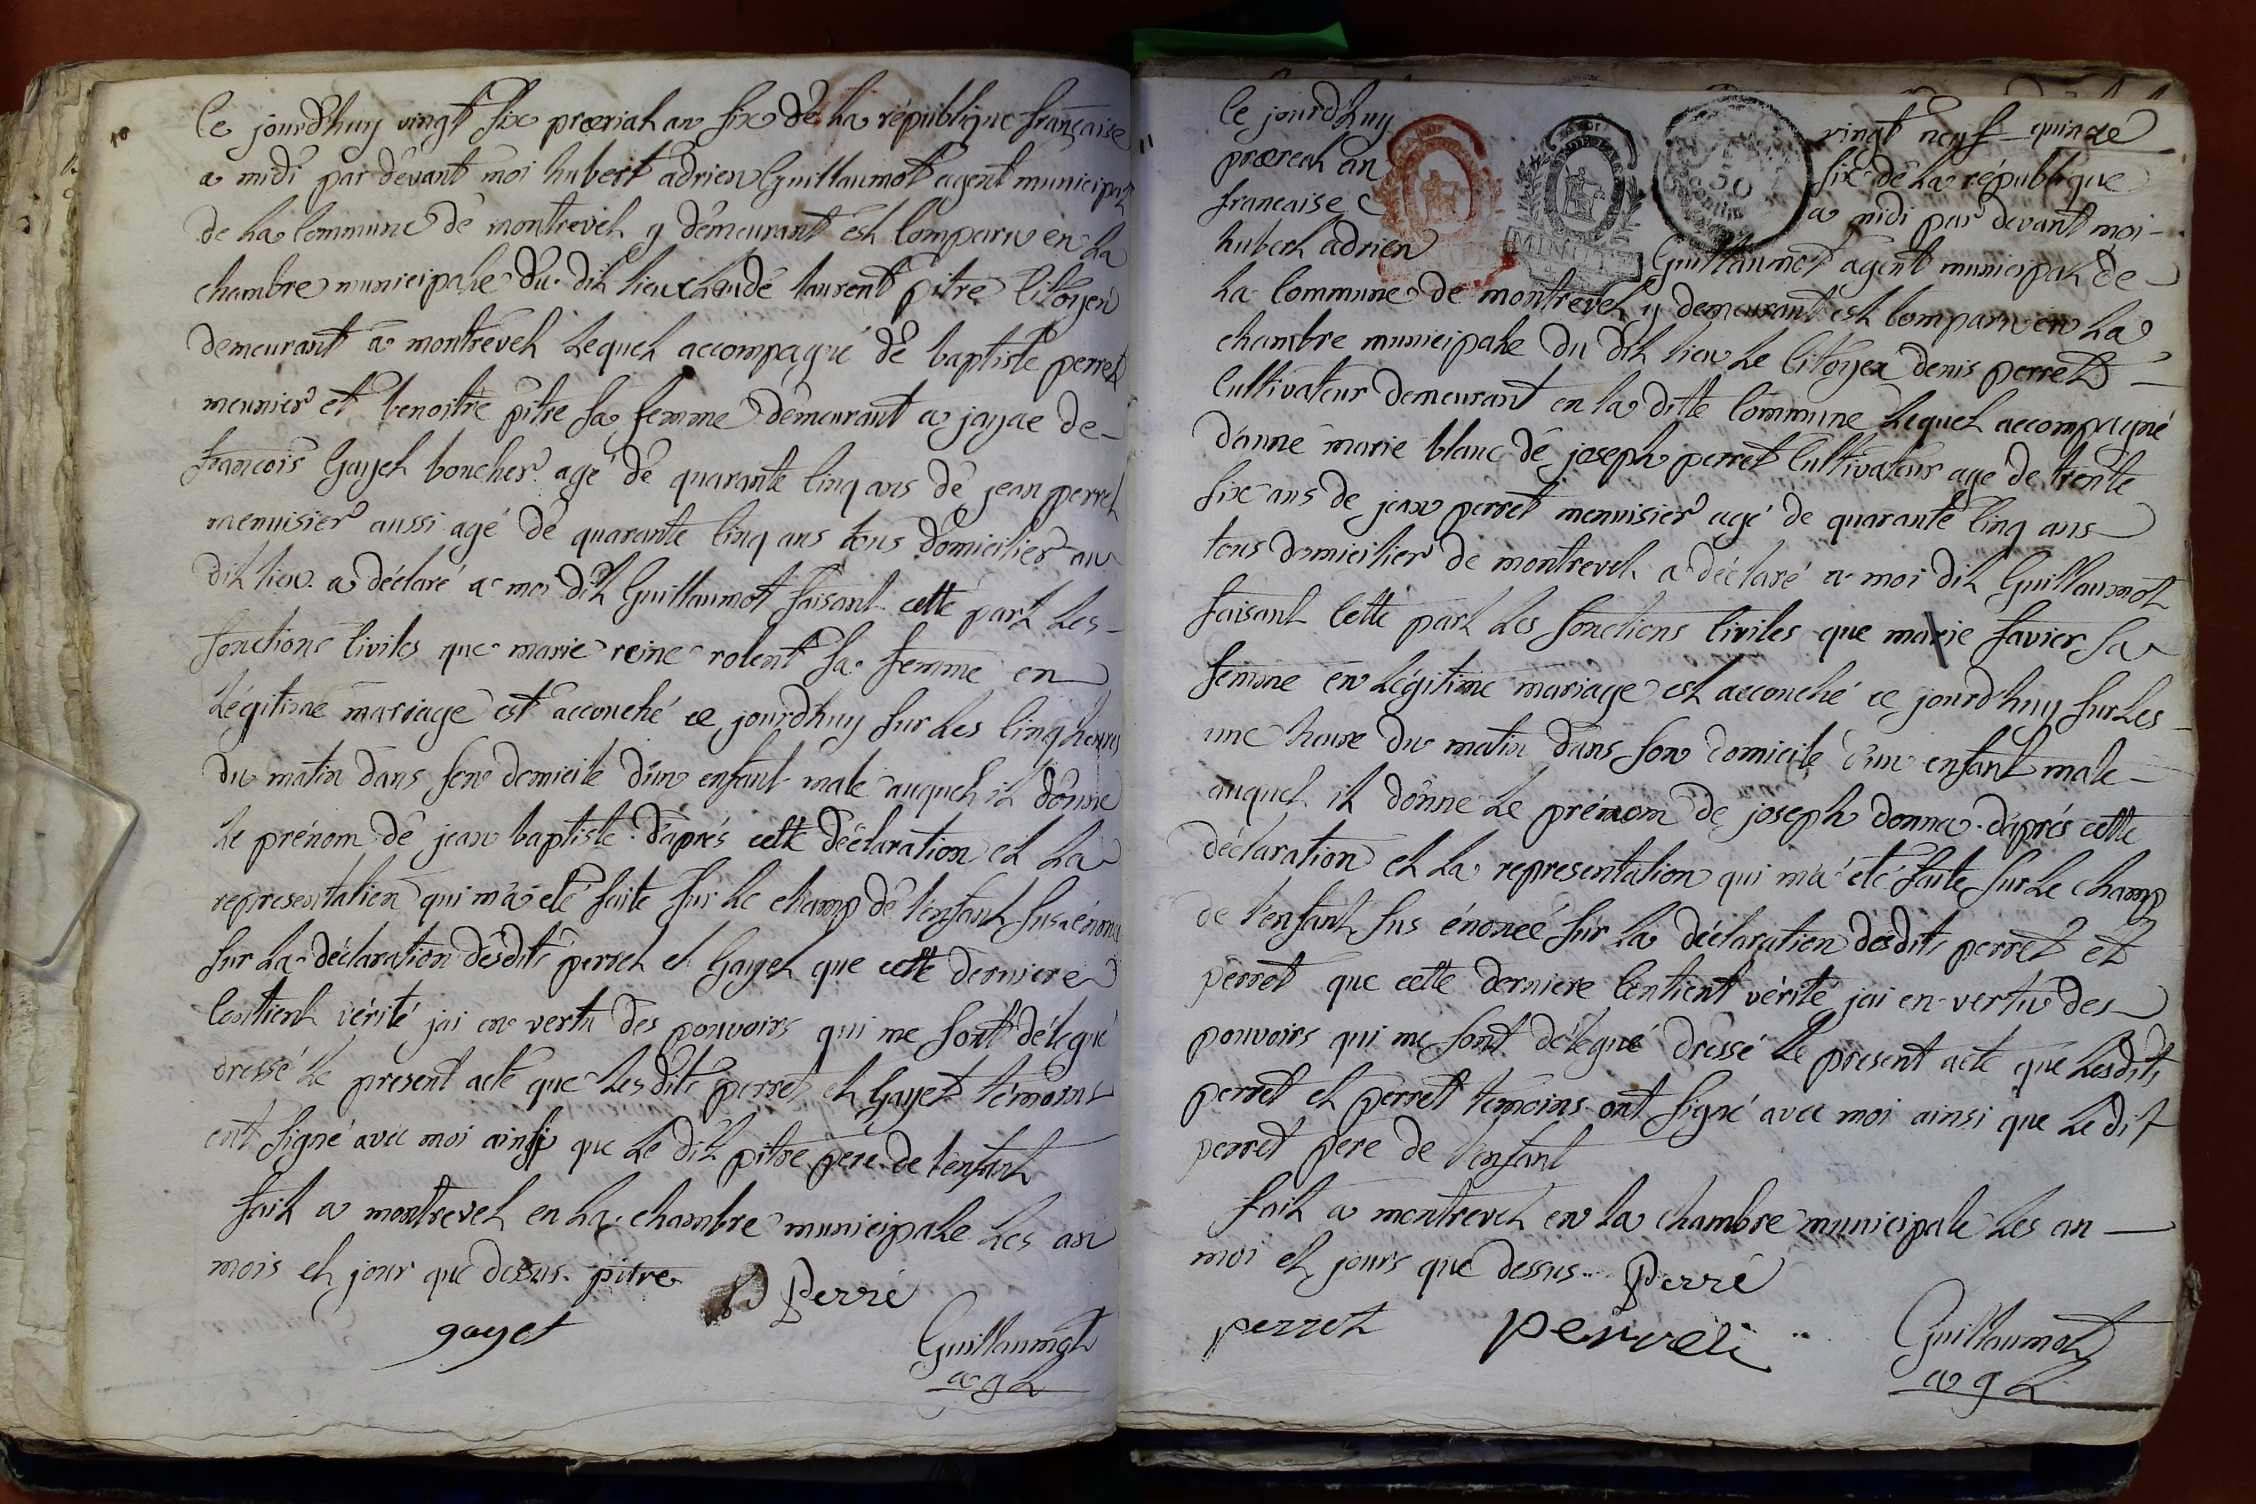 10
Ce jourdhuy vingt six prœrial an six de la république française
a midi par devant moi hubert adrien Guillaumot agent municipal
de la Commune de montrevel y demeurant est Comparu en la
chambre municipale du dit lieu claude laurent pitre Citoyen
demeurant a montrevel lequel accompagné de baptiste perret
meunier et benoitte pitre sa femme demeurant a jayac de
francois Gayet boucher agé de quarante cinq ans de jean perret
menuisier aussi agé de quarante cinq ans tous domicilier au
dit lieu a déclaré a moi dit Guillaumot faisant cette part les
fonctions Civiles que marie reine rolent sa femme en
légitime mariage est accouché ce jourdhuy sur les Cinq heures
du matin dans son domicile d'un enfant male auquel il donne
le prénom de jean baptiste d'aprés cette déclaration et la
representation qui m'a été faite sur le champ de l'enfant sus énoncé
sur la déclaration desdits perret et Gayet que cette derniere
Contient vérité jai en vertu des pouvoirs qui me sont délegué
dressé le present acte que lesdits perret et Gayet témoins
ont signé avec moi ainsi que le dit pitre pere de l'enfant
fait a montrevel en la chambre municipale les an
mois et jour que dessus. pitre
Perré
gayet
Guillaumot
agt
11
Ce jourdhuy vingt neuf quinze
prœreal an six de la république
francaise a midi par devant moi
hubert adrien Guillaumot agent municipal de
la Commune de montrevel y demeurant est Comparu en la
chambre municipale du dit lieu le Citoyen denis perret
Cultivateur demeurant en la ditte Commune lequel accompagné
d'anne marie blanc de joseph perret Cultivateur agé de trente
six ans de jean perret menuisier agé de quarante Cinq ans
tous domicilier de montrevel a déclaré a moi dit Guillaumot
faisant Cette part les fonctions Civiles que marie favier sa
femme en légitime mariage est accouché ce jourdhuy sur les
une heure du matin dans son domicile d'un enfant male
auquel il donne le prénom de joseph donna d'aprés cette
déclaration et la representation qui m'a été faite sur le champ
de l'enfant sus énoncé sur la déclaration desdits perret et
perret que cette derniere Contient vérité jai en vertu des
pouvoirs qui me sont délegué dressé le present acte que lesdits
perret et perret témoins ont signé avec moi ainsi que le dit
perret pere de l'enfant
fait a montrevel en la chambre municipale les an
moi et jours que dessus Perré
perret
Guillaumot
agt
50
MINUTE